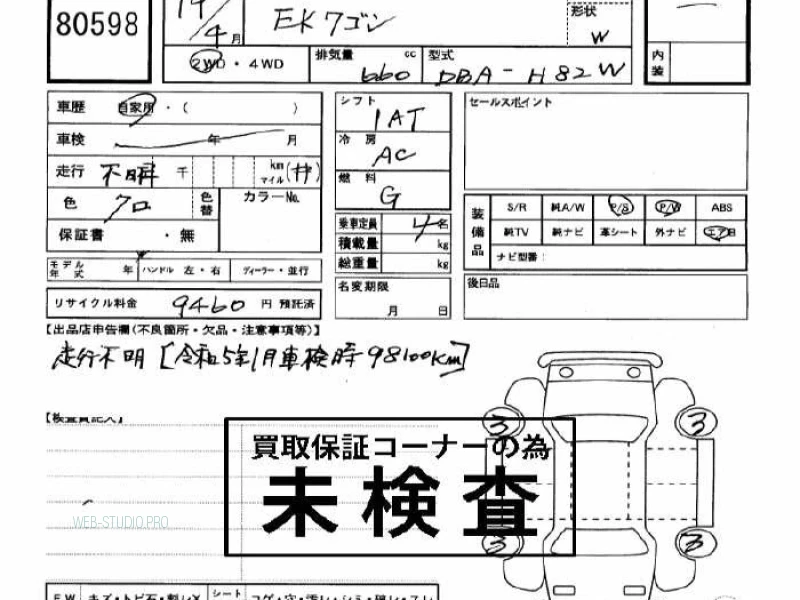 80598
19/4月
EKワゴン
形状 W
2WD・4WD
排気量 cc 660
型式 DBA-H82W
内装
車歴 自家用・( )
車検 年 月
走行 不明 千 km マイル (#)
色 クロ 色替 カラーNo.
保証書 ・無
モデル年式 年 ハンドル 左・右 ディーラー・並行
リサイクル料金 9460 円 預託済
シフト IAT
冷房 AC
燃料 G
乗車定員 4名
積載量 kg
総重量 kg
名変期限
月 日
セールスポイント
装備品
S/R 純A/W P/S P/W ABS
純TV 純ナビ 革シート 外ナビ エアB
ナビ型番:
後日品
【出品店申告欄(不良箇所・欠品・注意事項等)】
走行不明 [令和5年1月車検時98100km]
買取保証コーナーの為
未検査
3 3
3 3
WEB-STUDIO.PRO